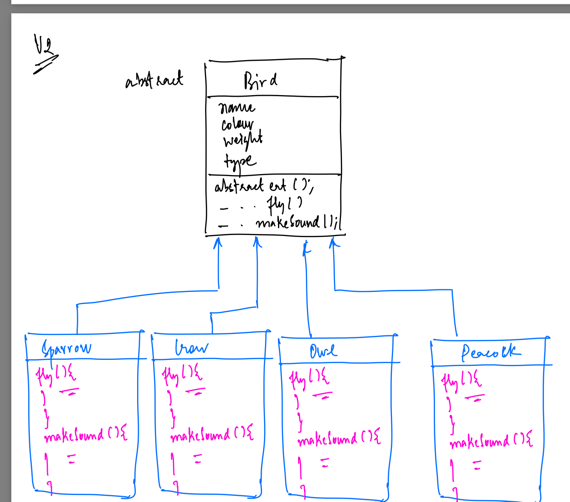 V2
abstract
Bird
name
colour
weight
type
abstract eat ();
_ . . fly ()
_ . . makeSound ();
Sparrow
fly () {
=
}
}
makeSound () {
=
}
Crow
fly () {
=
}
}
makeSound () {
=
}
Owl
fly () {
=
}
}
makeSound () {
=
}
Peacock
fly () {
=
}
}
makeSound () {
=
}